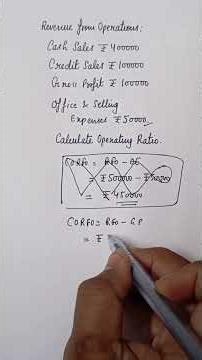 Revenue from Operations:
Cash Sales ₹ 400000
Credit Sales ₹ 100000
Gross Profit ₹ 100000
Office & Selling
Expenses ₹ 50000
Calculate Operating Ratio.
CORFO = RFO -
= ₹ 500000 - ₹
= ₹ 450000
CORFO = RFO - G.P
= ₹